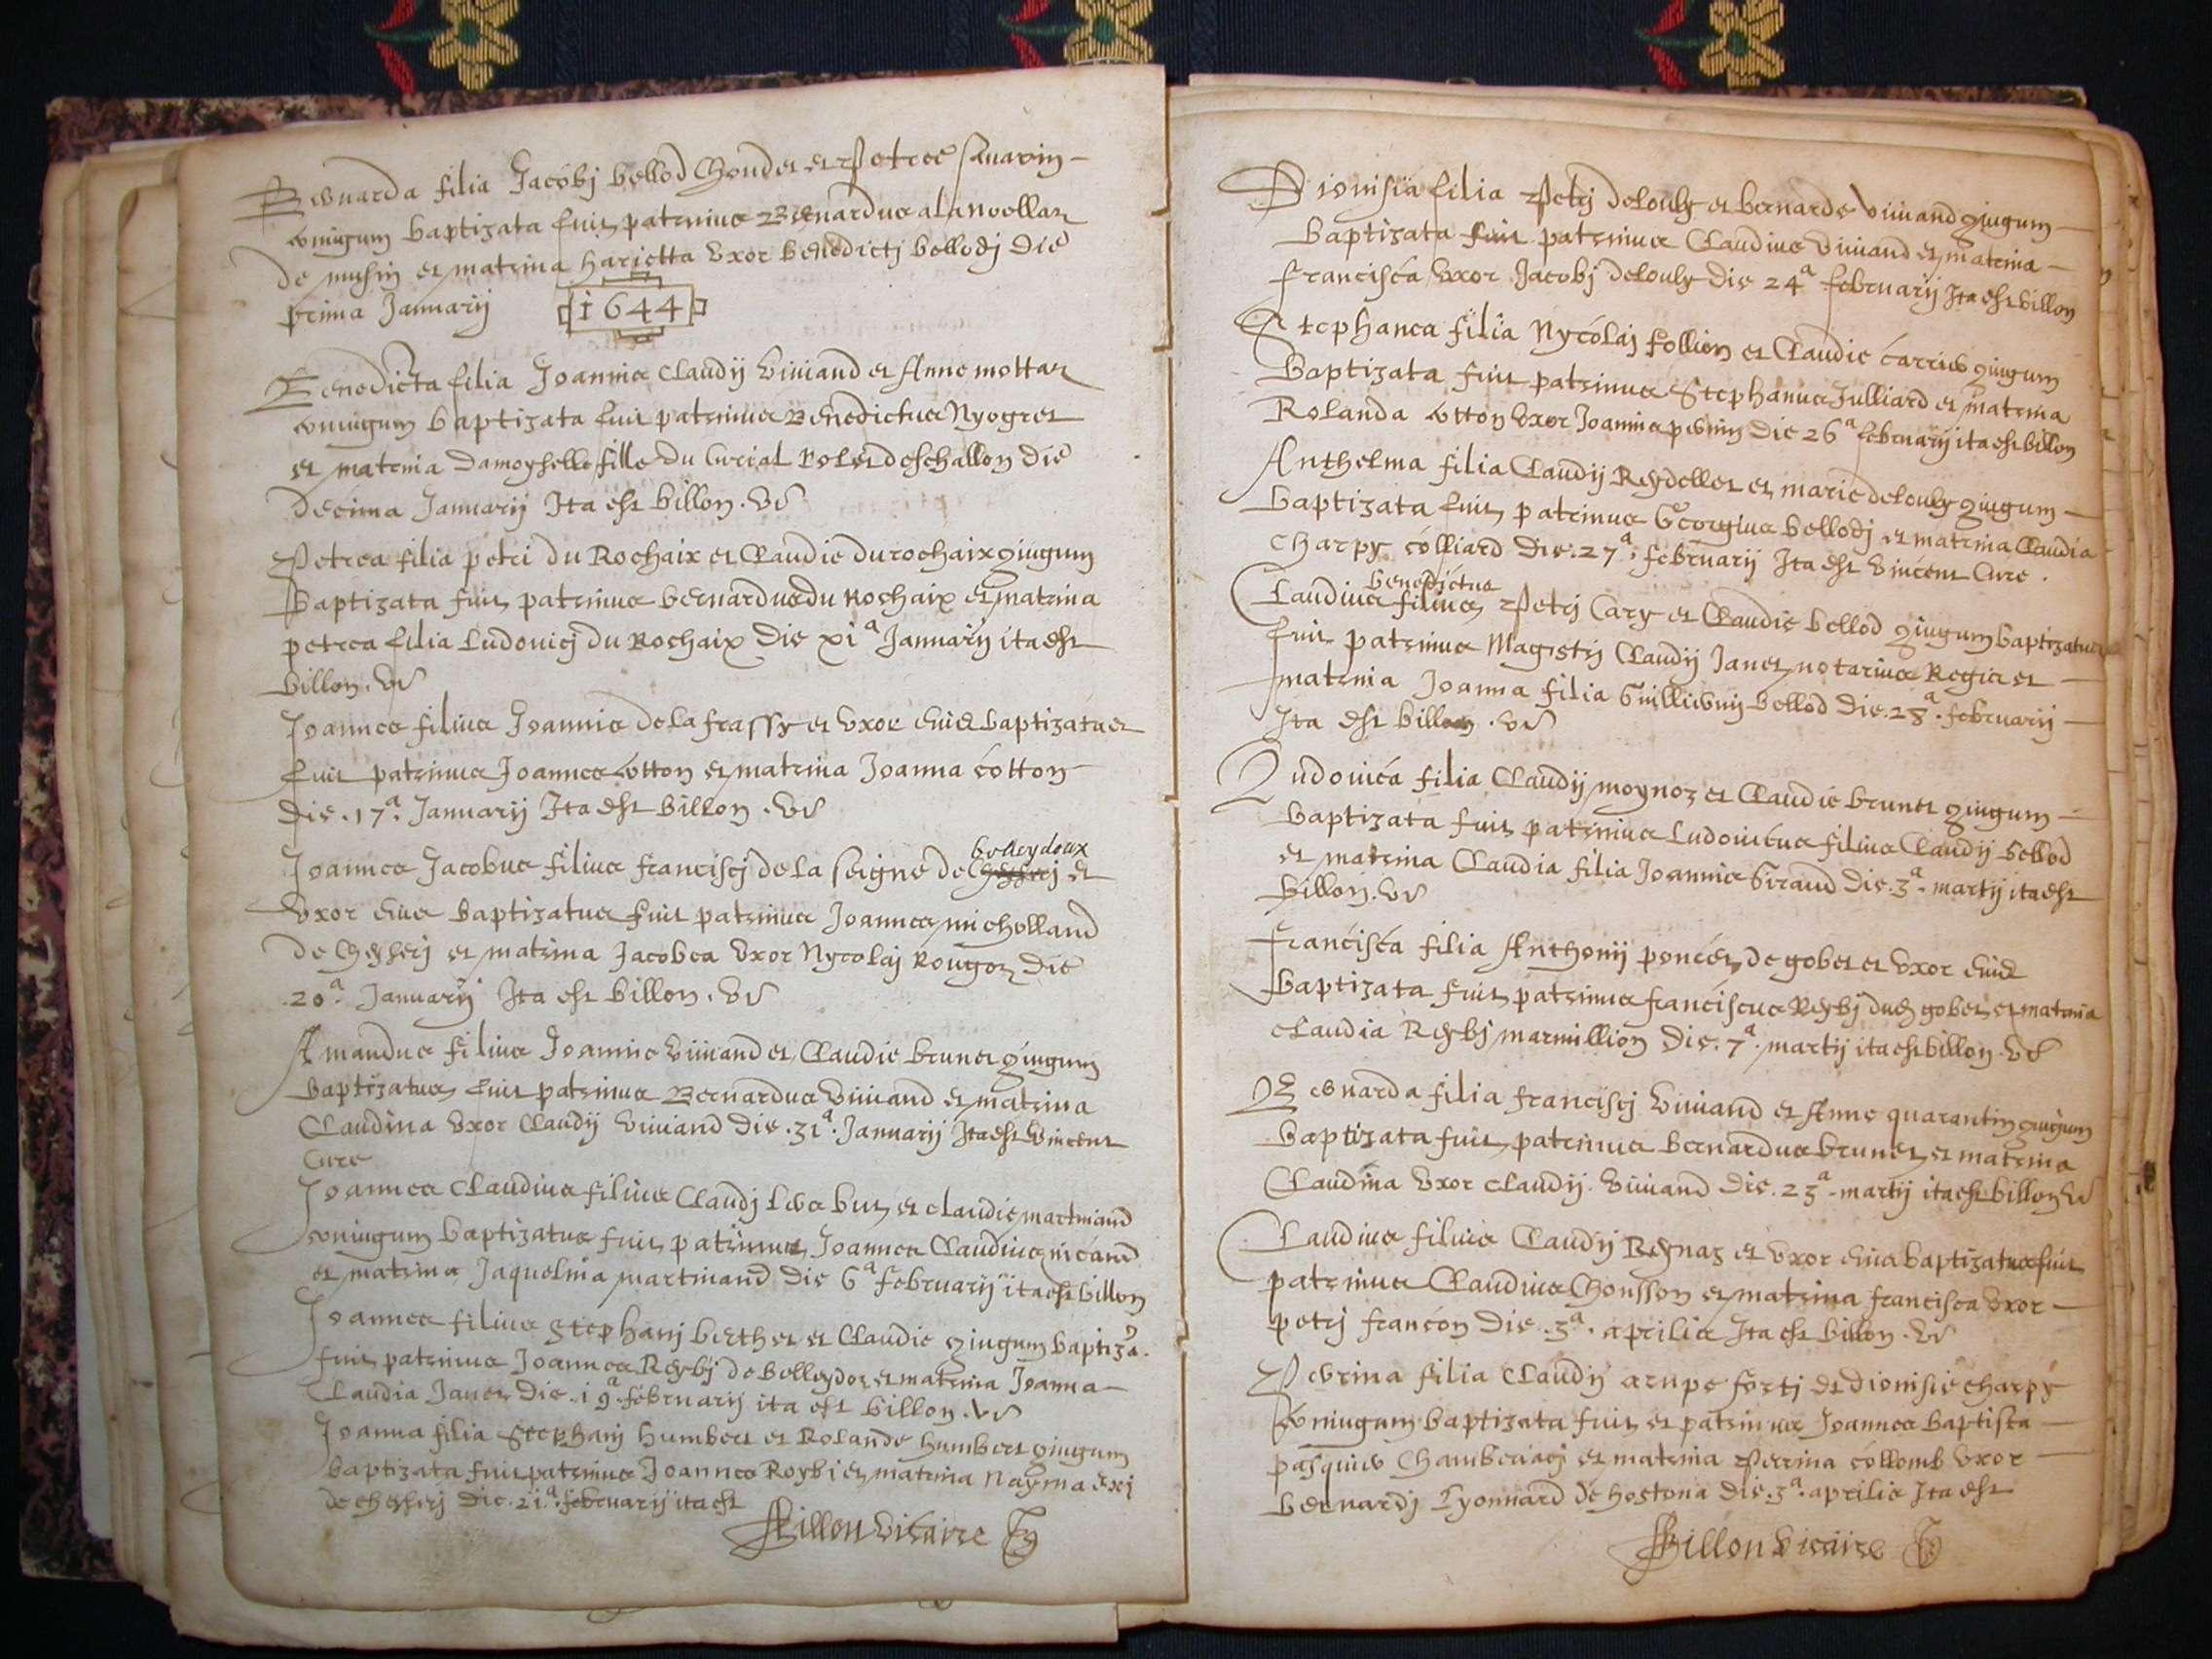 Bernarda filia Jacobj bellod Chonder et Petree sauarin
coniugum baptizata fuit patrinus Bernardus
de musin et matrina harietta vxor benedictj bellodj die
prima Januarij 1644
Benedicta filia Joannis Claudij Viuiand et Anne mottaz
coniugum baptizata fuit patrinus Benedictus Nyogret
et matrina damoyselle fille du Curial Rolet deschallon die
decima Januarij Ita est billon. vi
Petrea filia petri du Rochaix et Claudie du rochaix giugum
baptizata fuit patrinus bernardus du Rochaix et matrina
petrea filia Ludouicj du Rochaix die xi a Januarij ita est
billon. vi
Joannes filius Joannis de la frassy et vxor eius baptizatus
fuit patrinus Joannes cotton et matrina Joanna cotton
die. 17 a. Januarij Ita est billon. vi
belleydoux
Joannes Jacobus filius franciscj de la seigne de et
vxor eius baptizatus fuit patrinus Joannes micholland
de Cheserj et matrina Jacobea vxor Nycolaj Rougoz die
20 a. Januarij Ita est billon. vi
Amandus filius Joannis viuiand et Claudie brunet giugum
baptizatus fuit patrinus Bernardus Viuiand et matrina
Claudina vxor Claudij viuiand die. 31 a. Januarij Ita est Vincent
Cure
Joannes Claudius filius Claudj et claudie martinand
coniugum baptizatus fuit patrinus Joannes Claudius nicand
et matrina Jaquelina martinand die 6 a februarij ita est billon
Joannes filius Stephanj berthet et Claudie giugum baptiza.
fuit patrinus Joannes Reybj de belleydoz et matrina Joanna
Claudia Janet die. 19 a. februarij ita est billon. vi
Joanna filia Stephanj humbert et Rolande humbert giugum
baptizata fuit patrinus Joannes Roybj et matrina Nayma
de cheserj die. 21 a. februarij ita est
Billon vicaire
Dionisia filia Petrj delouly et bernarde viuiand giugum
baptizata fuit patrinus Claudius viuiand et matrina
francisca vxor Jacobj delouly die 24 a februarij Ita est billon
Stephanea filia Nycolaj follion et Claudie carrier giugum
baptizata fuit patrinus Stephanus Julliard et matrina
Rolanda cotton vxor Joannis perrin die 26 a februarij ita est billon
Anthelma filia Claudij Reydellet et marie delouly giugum
baptizata fuit patrinus Georgius bellodj et matrina Claudia
Charpy colliard die. 27 a. februarij Ita est Vincent Cure.
benedictus
Claudius filius Petrj Cary et Claudie bellod giugum baptizatus
fuit patrinus Magistrj Claudij Janet notarius Regis et
matrina Joanna filia Guillermj bellod die. 28 a. februarij
Ita est billon. vi
Ludouica filia Claudij moynoz et Claudie brunet giugum
baptizata fuit patrinus Ludouicus filius Claudij bellod
et matrina Claudia filia Joannis Giraud die. 3 a. martij ita est
billon. vi
francisca filia Anthonij poncet de gobet et vxor eius
baptizata fuit patrinus franciscus Reybj gobet et matrina
Claudia Reybj marmillion die. 7 a. martij ita est billon. vi
Bernarda filia franciscj viuiand et Anne quarantin giugum
baptizata fuit patrinus bernardus brunet et matrina
Claudina vxor claudij. viuiand die. 23 a. martij ita est billon vi
Claudius filius Claudij Reynaz et vxor eius baptizatus fuit
patrinus Claudius Chonsson et matrina francisca vxor
petrj francon die. 3 a. aprilis Ita est billon. vi
Perrina filia Claudij a rupe fortj et dionisie charpy
coniugum baptizata fuit et patrinus Joannes baptista
pasquier Chamberiacj et matrina Perrina collomb vxor
bernardj Tyonnard de hostona die. 3 a. aprilis Ita est
Billon vicaire